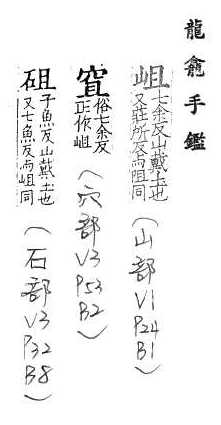 龍龕手鑑
岨七余反山戴土也又莊所反与阻同(山部V1P24B1)
䆝俗七余反正作岨(穴部V3P53B2)
砠子魚反山戴土也又七魚反与岨同(石部V3P32B8)